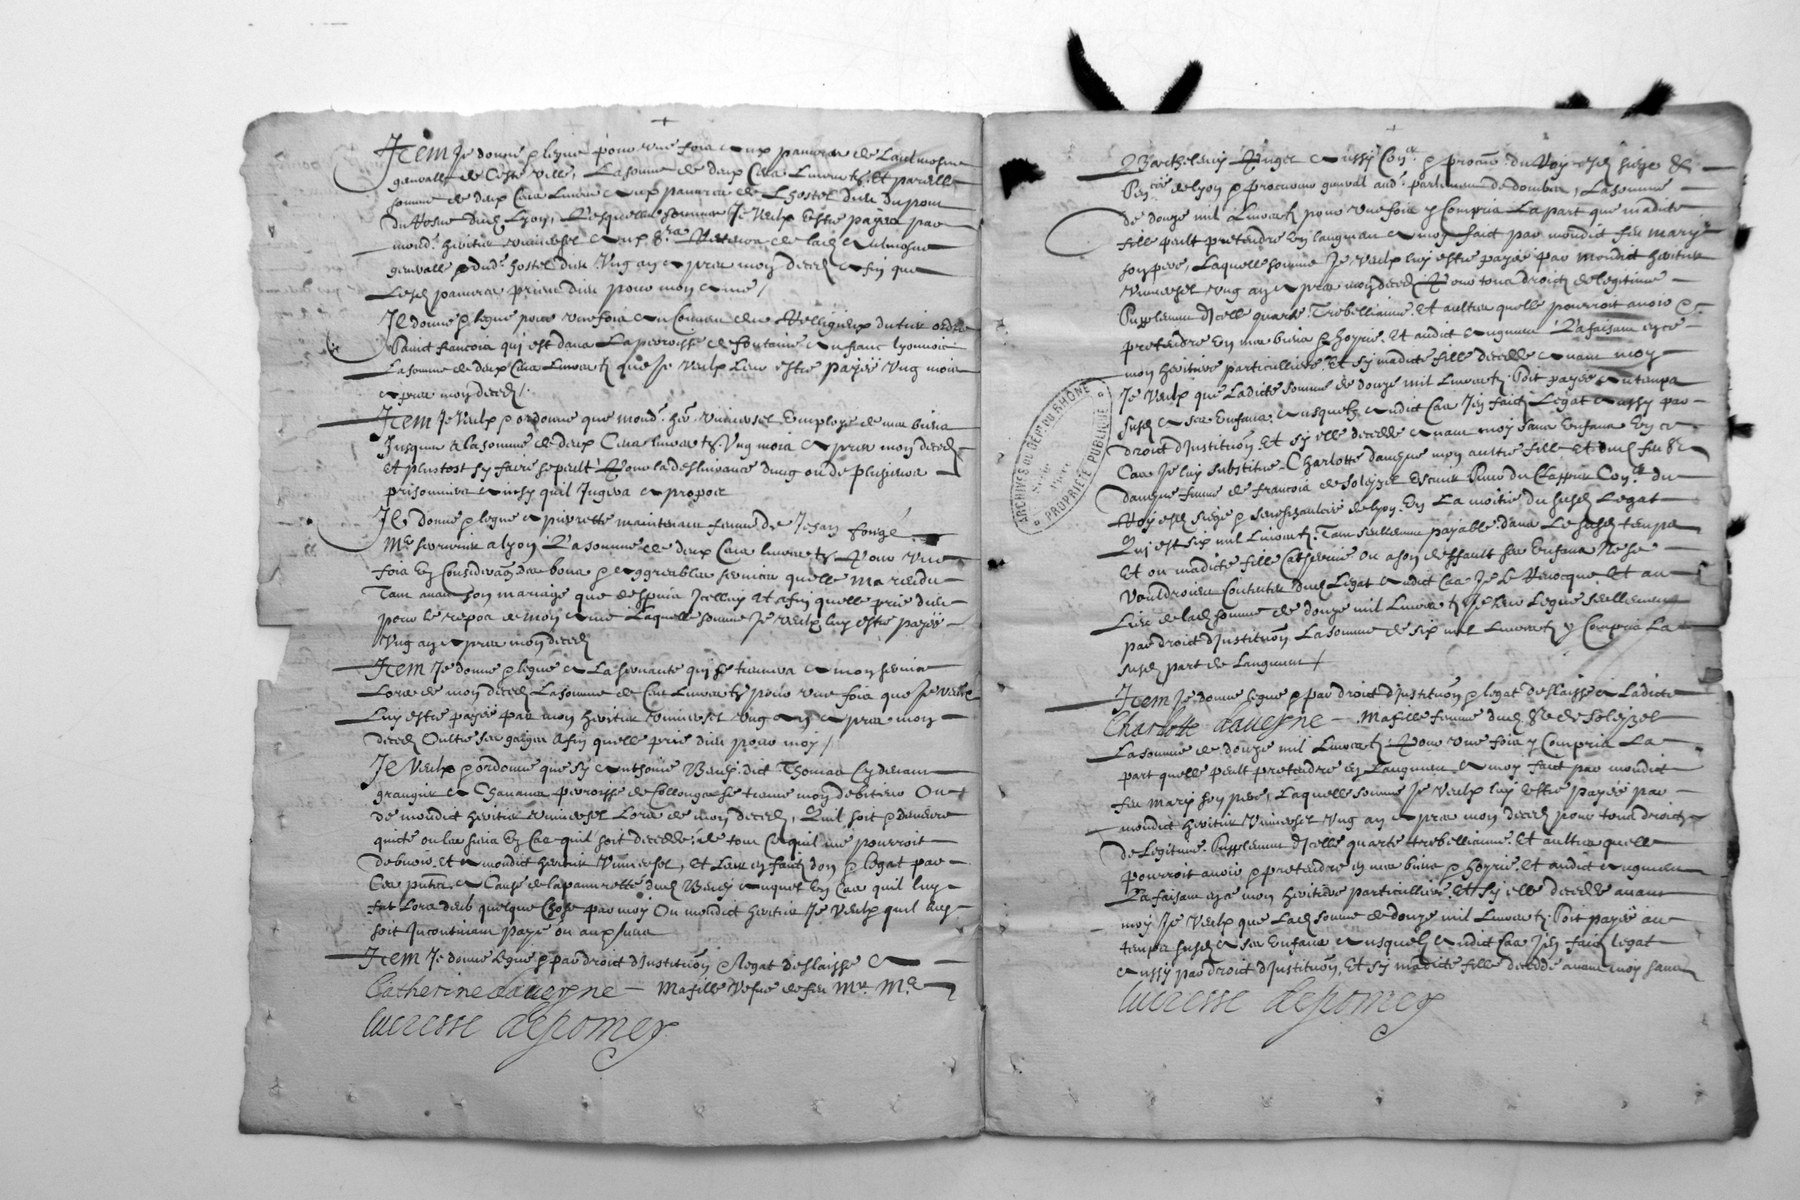 Item Je donne & legue pour une fois aux pauvres de Laulmosne
genralle de Ceste ville, La somme de deux Cens Livres tz Et pareille
somme de deux Cens Livres aux pauvres de Lhostel dieu du pont
du Rosne dud Lyon, Lesquelles sommes Je Veulx Estre payees par
mond heritier universel aux Recteurs de lad aulmosne
genralle & dud hostel dieu Ung an apres mon deces afin que
Lesd pauvres prient dieu pour mon ame /
Je donne & legue pour une fois au Couvent des Relligieux du tiers ordre
Sainct francois qui est dans La parroisse de fontaine en franc lyonnois
La somme de deux Cens Livres tz que Je Veulx Leur Estre payee Ung mois
apres mon deces /
Item Je Veulx & ordonne que mond her universel Employe de mes biens
Jusques a la somme de deux Cens livres tz Ung mois apres mon deces
et plustost sy faire se peult Pour la deslivrance dung ou de plusieurs
prisonniers ainsy quil Jugera a propos
Je donne & legue a pierrette maintenant femme de Jehan forge
a lyon La somme de deux Cens livres tz Pour une
fois En Consideraon des bons & aggreables services quelle ma rendu
Tant avant son mariage que despuis Icelluy Et afin quelle prie dieu
pour le repos de mon ame Laquelle somme Je veulx luy estre payee
Ung an apres mon deces
Item Je donne & legue a La servante qui se trouvera a mon service
Lors de mon deces La somme de Cent Livres tz pour une fois que Je veulx
Luy estre payee par mon heritier universel Ung an apres mon
deces Oultre ses gaiges Afin quelle prie dieu pour moy /
Je Veulx & ordonne que sy Anthoine dict Thomas Cy devant
grangier a parroisse de Collonges se treuve mon debiteur Ou
de mondict heritier universel Lors de mon deces, Quil soit & demeure
quicte ou les siens En Cas quil soit decedde, de tout Ce quil me pourroit
debvoir, Et a mondict heritier Universel, Et Leur en faictz don & legat par
Ces putes, a Cause de la pauvrette dud auquel En Cas quil luy
fut Lors deub quelque Chose par moy Ou mondict heritier Je Veulx quil luy
soit Incontinant paye ou aux siens
Item Je donne legue & par droict dInstitution & Legat deslaisse a
Catherine dauergne Ma fille Vefve de feu Mre Me
lucresse depomey
Barthelemy aussy Coner & procur du Roy esd siege &
de Lyon & procureur genral aud parlement de dombes, La somme
de douze mil Livres tz pour une fois y Compris La part que madicte
fille peult pretendre En laugment a moy faict par mondict feu mary
son pere, Laquelle somme Je Veulx luy estre payee par mondict heritier
Universel Ung an apres mon deces Pour tous droictz de legitime
Supplement dIcelle quarte Trebellianne, Et aultres quelle pourroit avoir &
pretendre En mes biens & hoyrie, Et audict augment La faisant en ce
mon heritiere particulliere, Et sy madicte fille decedde avant moy
Je Veulx que Ladicte somme de douze mil Livres tz soit payee au temps
susd a ses Enfans ausquelz audict Cas Jen faictz Legat aussy par
droict dInstitution, Et sy elle decedde avant moy sans Enfans En ce
Cas Je luy substitue Charlotte dauergne mon aultre fille Et dud feu Sr
dauergne femme de francois de soleyzel Escuier Coner du
Roy esd siege & seneschaulcee de lyon En La moitie du susd Legat
Qui est six mil Livres tz Tant seullement payable dans Le susd temps
Et ou madicte fille Catherine Ou a son deffault ses Enfans Ne se
Vouldroient Contenter dud Legat audict Cas Je Le Revocque, Et au
Lieu de lad somme de douze mil Livres tz Je leur Legue seullement
par droict dInstitution La somme de six mil Livres tz y Compris La
susd part de Laugment /
Item Je donne legue & par droict dInstitution & legat deslaisse a Ladicte
Charlotte dauergne Ma fille femme dud Sr de Soleyzel
La somme de douze mil Livres tz Pour une fois y Compris La
part quelle peult pretendre En Laugment a moy faict par mondict
feu mary son pere, Laquelle somme Je Veulx luy Estre payee par
mondict heritier Universel Ung an apres mon deces pour tous droictz
de Legitime Supplement dIcelle quarte trebellianne, Et aultres quelle
pourroit avoir & pretendre En mes biens & hoyrie, Et audict augment
La faisant en ce mon heritiere particulliere, Et sy elle decedde avant
moy Je Veulx que Lad somme de douze mil Livres tz soit payee au
temps susd a ses Enfans ausquelz audict Cas Jen faictz legat
aussy par droict dInstitution, Et sy madicte fille decedde avant moy sans
lucresse depomey
ARCHIVES DU DEPT DU RHONE
PROPRIÉTÉ PUBLIQUE